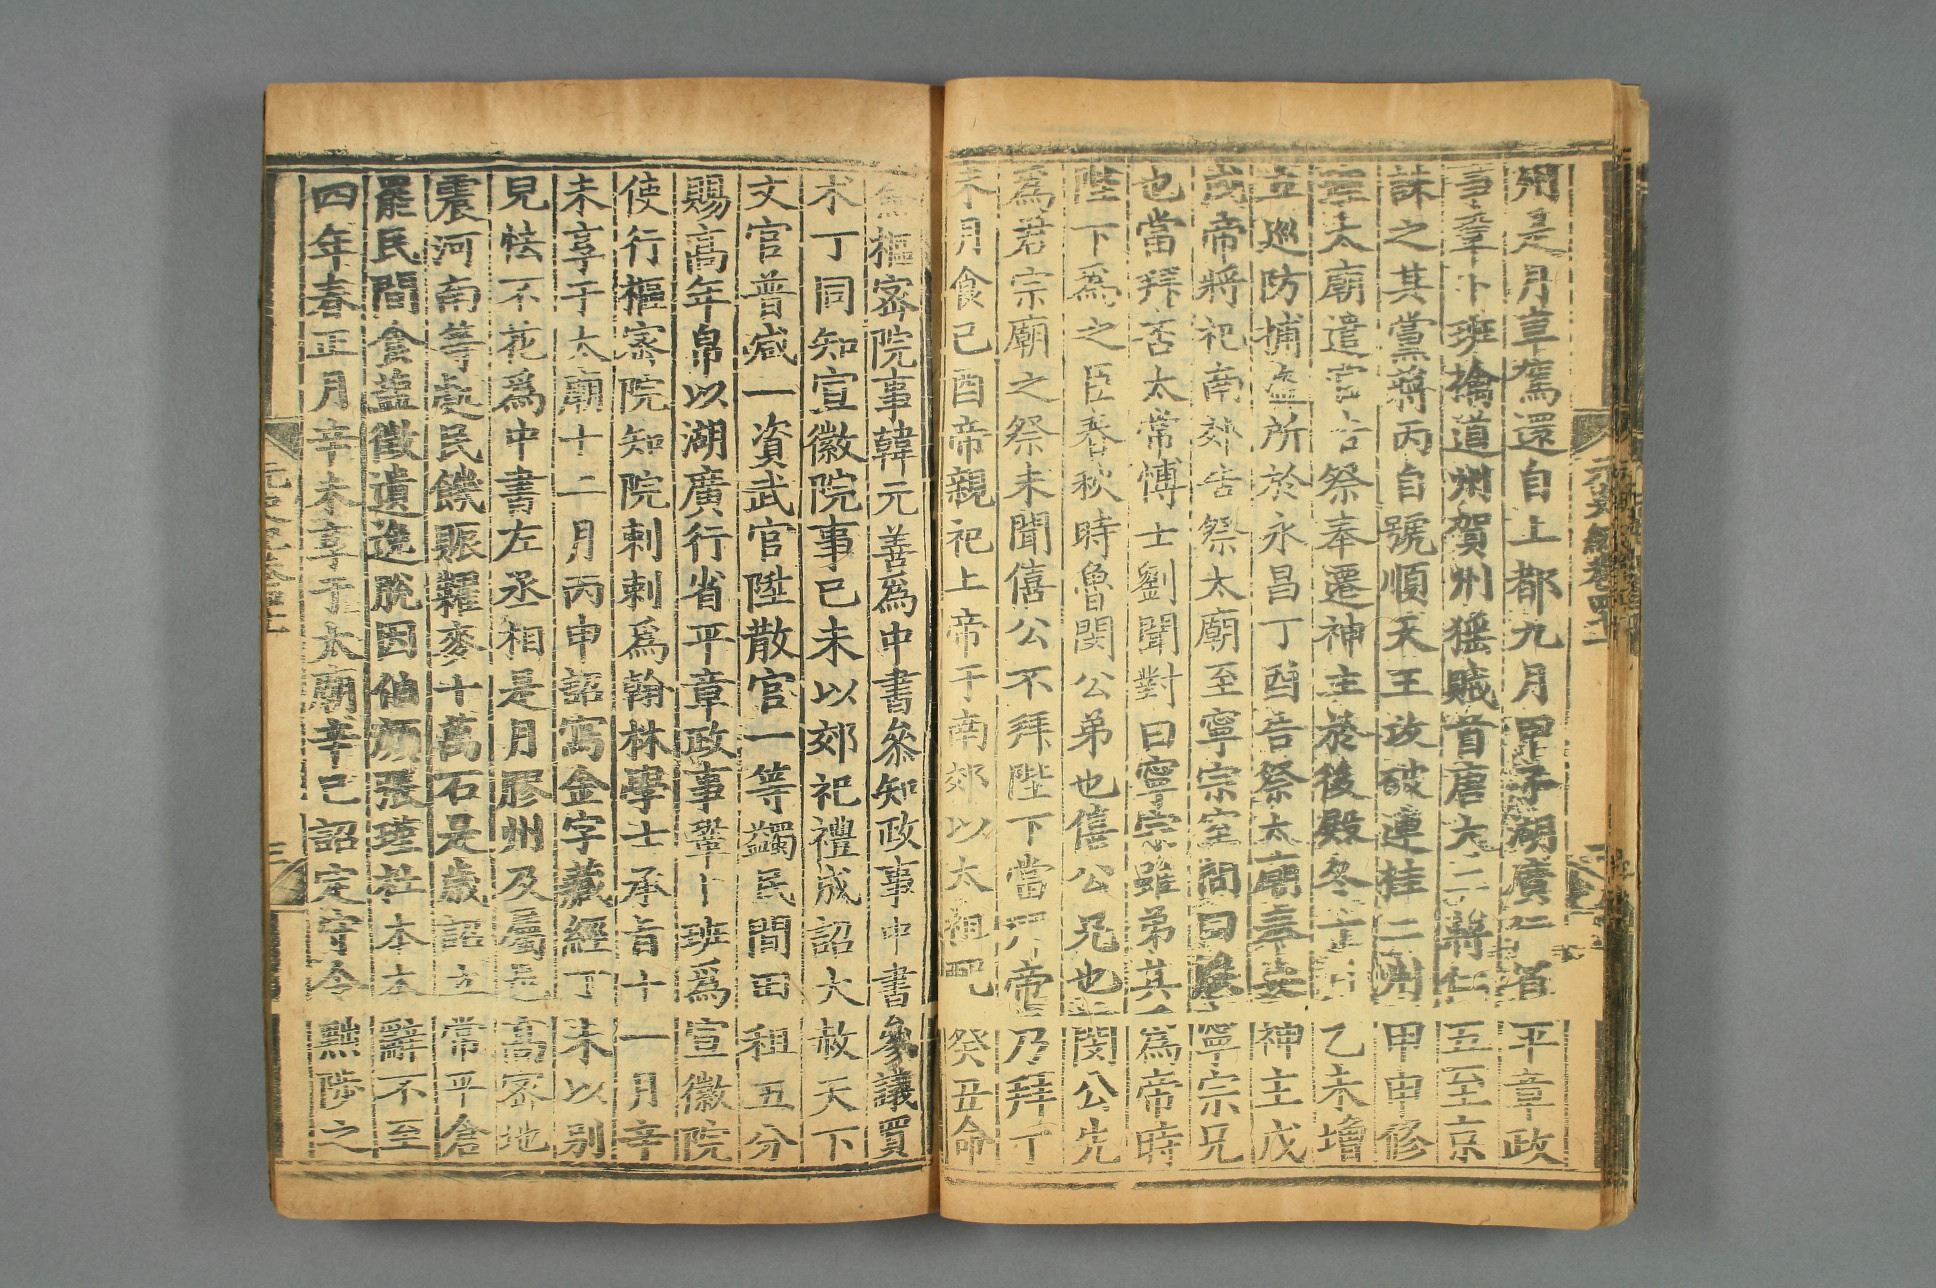 用是月車駕還自上都九月甲子湖廣行省平章政
事鞏卜班擒道州賀州猺賊首唐大二蔣仁五至京
誅之其黨蔣丙自號順天王攻破連桂二州甲申修
理太廟遣官告祭奉遷神主於後殿冬十月乙未增
立巡防捕盗所於永昌丁酉告祭太廟奉安神主戊
戌帝將祀南郊告祭太廟至寧宗室問曰朕寧宗兄
也當拜否太常愽士劉聞對曰寧宗雖弟其為帝時
陛下爲之臣春秋時魯閔公弟也僖公兄也閔公先
爲君宗廟之祭未聞僖公不拜陛下當 帝乃拜丁
未月食己酉帝親祀上帝于南郊以太祖配癸丑命
樞宻院事韓元善為中書叅知政事中書叅議買
术丁同知宣徽院事已未以郊祀禮成詔大赦天下
文官普減一資武官陞散官一等蠲民間田租五分
賜高年帛以湖廣行省平章政事鞏卜班爲宣徽院
使行樞宻院知院剌剌爲翰林學士承旨十一月辛
未享于太廟十二月丙申詔寫金字藏經丁未以别
兒怯不花爲中書左丞相是月膠州及屬邑高宻地
震河南等處民饑賑糶麥十萬石是歲詔立常平倉
罷民間食盬徵遺逸脫因伯顔張瑾杜本本辭不至
四年春正月辛未享于太廟辛巳詔定守令黜陟之
三